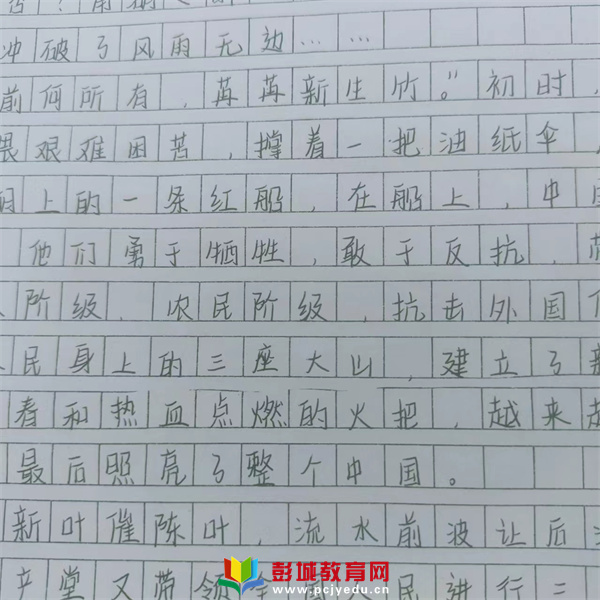 冲破了风雨无边……
前何所有，苒苒新生竹。”初时，
畏艰难困苦，撑着一把油纸伞，
上的一条红船，在船上，中
他们勇于牺牲，敢于反抗，
阶级、农民阶级，抗击外国
民身上的三座大山，建立了新
春和热血点燃的火把，越来越
最后照亮了整个中国。
新叶催陈叶，流水前波让后
产党又带领 民进行三
彭城教育网
www.pcjyedu.cn